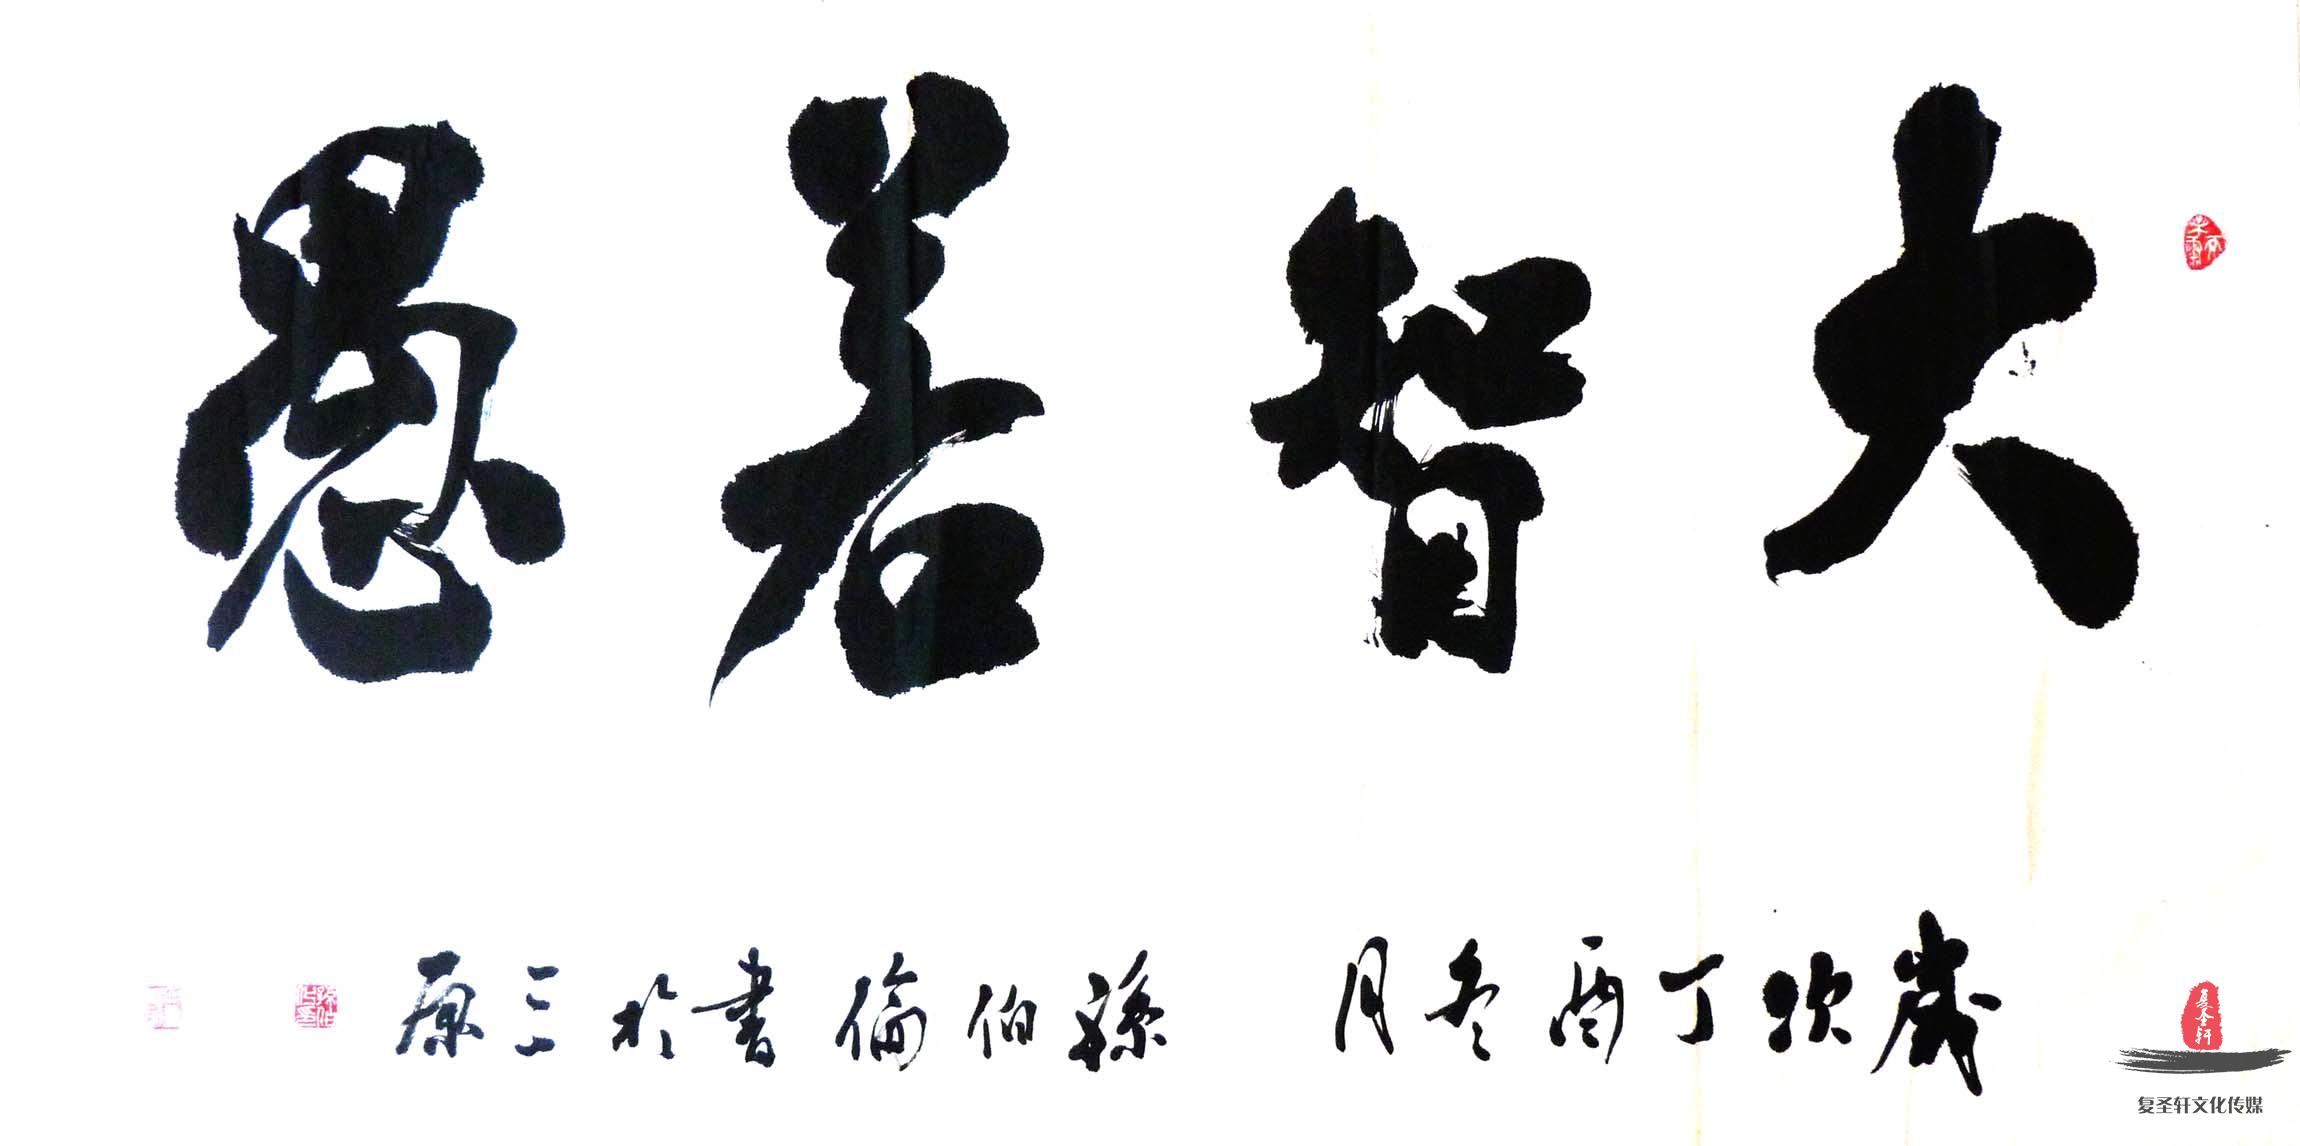 大智若愚
歲次丁酉冬月 孫伯倫書於三原
復圣轩
复圣轩文化传媒